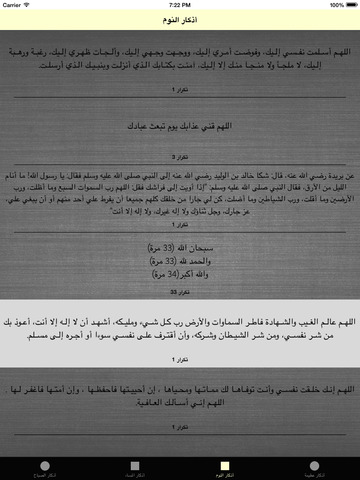 Carrier
7:22 PM
100%
أذكار النوم
اللهم أسلمت نفسي إليك، وفوضت أمري إليك، ووجهت وجهي إليك، وألجأت ظهري إليك، رغبة ورهبة
إليك، لا ملجأ ولا منجا منك إلا إليك، آمنت بكتابك الذي أنزلت وبنبيك الذي أرسلت.
تكرار 1
اللهم قني عذابك يوم تبعث عبادك
تكرار 3
عن بريدة رضي الله عنه، قال: شكا خالد بن الوليد رضي الله عنه إلى النبي صلى الله عليه وسلم فقال: يا رسول الله! ما أنام
الليل من الأرق، فقال النبي صلى الله عليه وسلم: "إذا أويت إلى فراشك فقل: اللهم رب السموات السبع وما أظلت، ورب
الأرضين وما أقلت، ورب الشياطين وما أضلت، كن لي جارا من خلقك كلهم جميعا أن يفرط علي أحد منهم أو أن يبغي علي،
عز جارك، وجل ثناؤك ولا إله غيرك، ولا إله إلا أنت"
تكرار 1
سبحان الله (33 مرة)
والحمد لله (33 مرة)
والله أكبر(34 مرة)
تكرار 33
اللهم عالم الغيب والشهادة فاطر السماوات والأرض رب كل شيء ومليكه، أشهد أن لا إله إلا أنت، أعوذ بك
من شر نفسي، ومن شر الشيطان وشركه، وأن أقترف على نفسي سوءا أو أجره إلى مسلم.
تكرار 1
اللهم إنك خلقت نفسي وأنت توفاها لك مماتها ومحياها ، إن أحييتها فاحفظها ، وإن أمتها فاغفر لها ..
اللهم إني أسألك العافية.
تكرار 1
أذكار عظيمة
أذكار النوم
أذكار المساء
أذكار الصباح